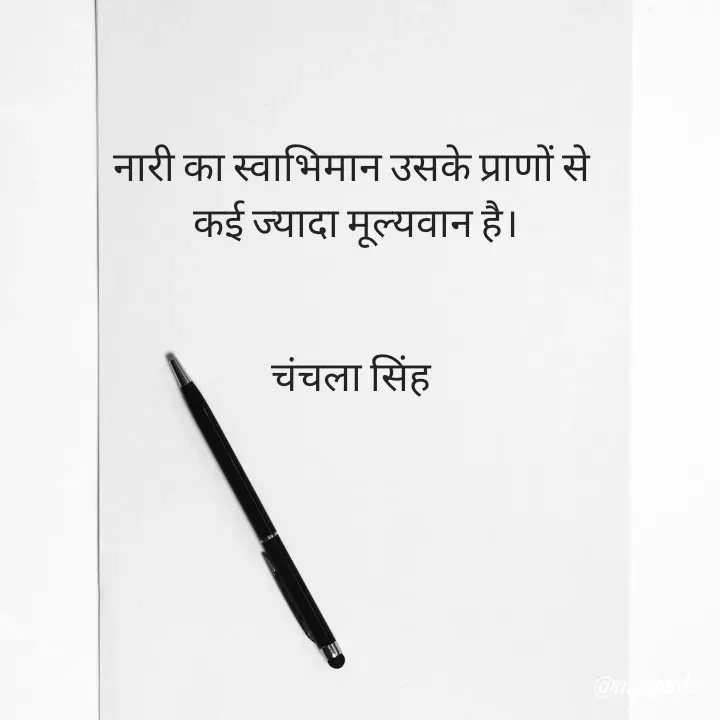 नारी का स्वाभिमान उसके प्राणों से
कई ज्यादा मूल्यवान है।
चंचला सिंह